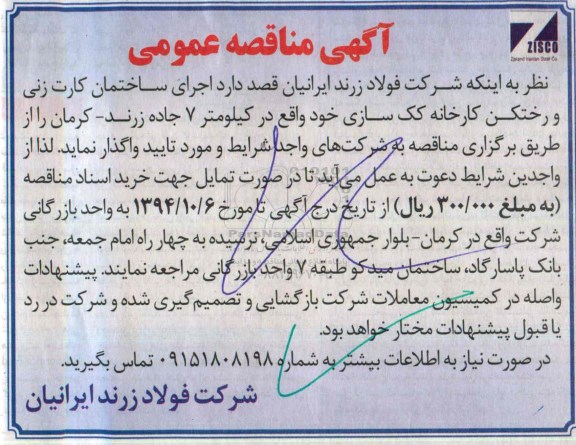 ZISCO
Zarand Iranian Steel Co.
آگهی مناقصه عمومی
نظر به اینکه شرکت فولاد زرند ایرانیان قصد دارد اجرای ساختمان کارت زنی
و رختکن کارخانه کک سازی خود واقع در کیلومتر ۷ جاده زرند- کرمان را از
طریق برگزاری مناقصه به شرکت‌های واجد شرایط و مورد تایید واگذار نماید. لذا از
واجدین شرایط دعوت به عمل می‌آید تا در صورت تمایل جهت خرید اسناد مناقصه
(به مبلغ ۳۰۰/۰۰۰ ریال) از تاریخ درج آگهی تا مورخ ۱۳۹۴/۱۰/۶ به واحد بازرگانی
شرکت واقع در کرمان- بلوار جمهوری اسلامی، نرسیده به چهار راه امام جمعه، جنب
بانک پاسارگاد، ساختمان میدکو طبقه ۷ واحد بازرگانی مراجعه نمایند. پیشنهادات
واصله در کمیسیون معاملات شرکت بازگشایی و تصمیم‌گیری شده و شرکت در رد
یا قبول پیشنهادات مختار خواهد بود.
در صورت نیاز به اطلاعات بیشتر به شماره ۰۹۱۵۱۸۰۸۱۹۸ تماس بگیرید.
شرکت فولاد زرند ایرانیان